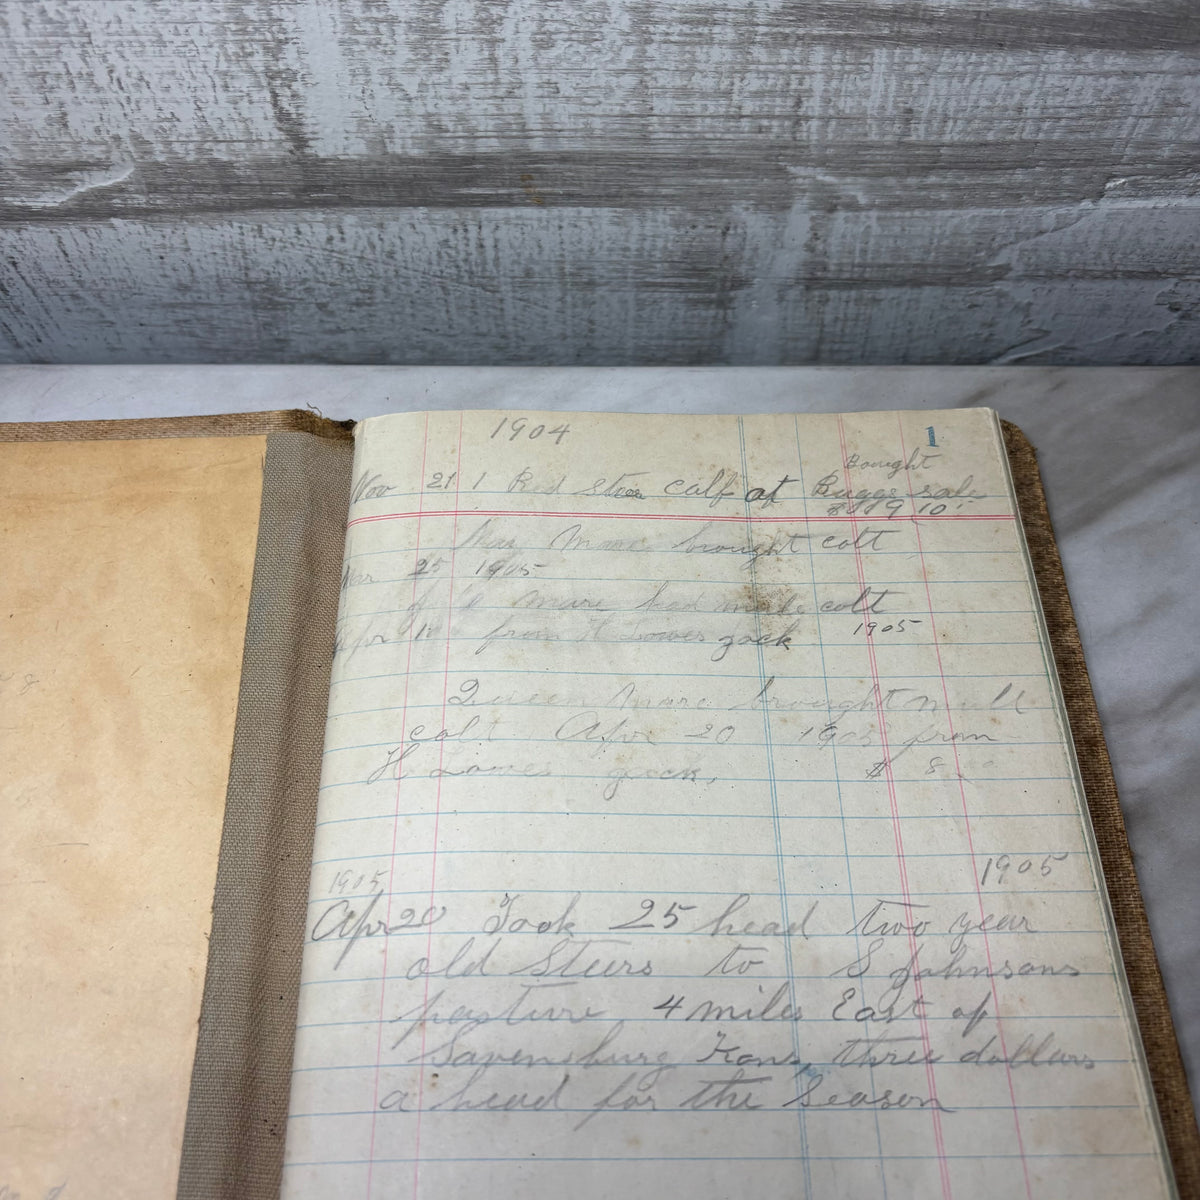 1904
1
Bought
Nov 21 1 Red steer calf at Buggs sale
10
May Mare brought colt
Mar 25 1905
mare had mule colt
Apr from H Lowes jack 1905
Queen Mare brought mule
colt Apr 20 1905 from
H Lowes jack, $ 8
1905
1905
Apr 20 Took 25 head two year
old Steers to S Johnsons
pasture 4 miles East of
Savensburg Kans, three dollars
a head for the Season